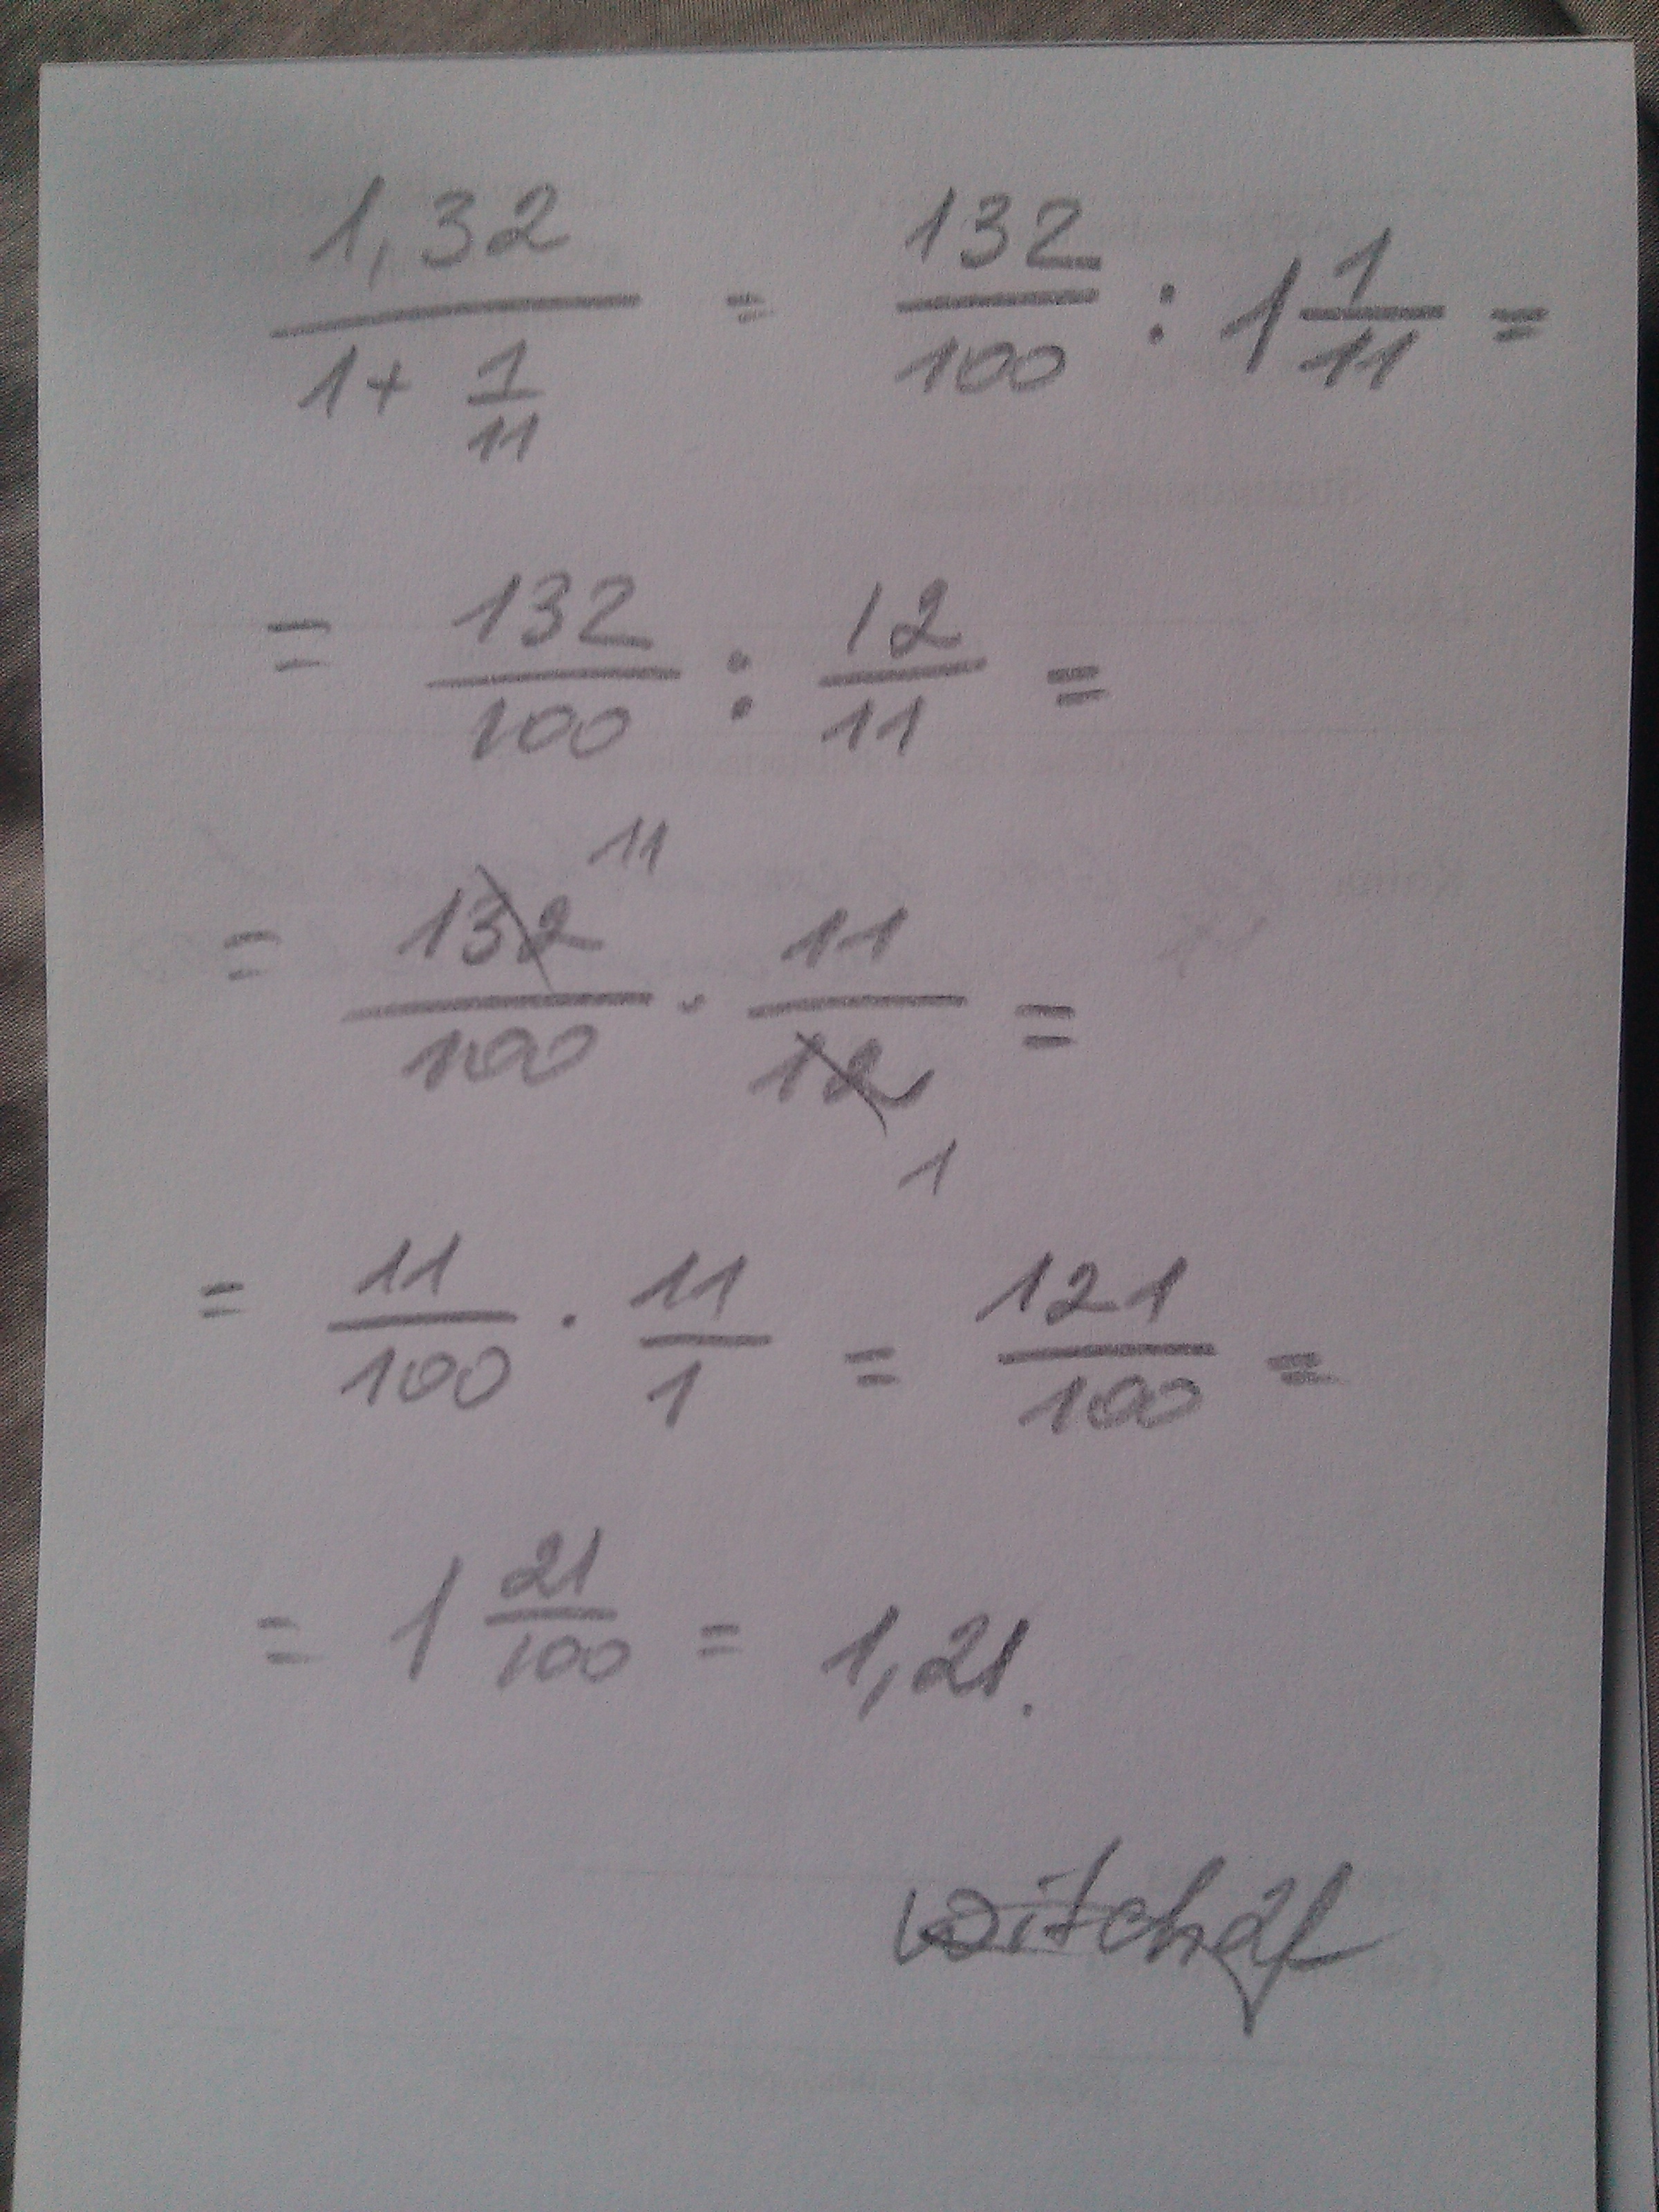 1,32 / (1 + 1/11) = 132/100 : 1 1/11 =
= 132/100 : 12/11 =
= 132/100 11 · 11/12 1 =
= 11/100 · 11/1 = 121/100 =
= 1 21/100 = 1,21.